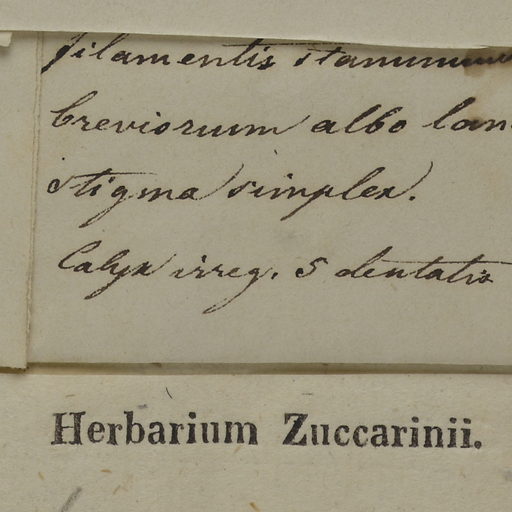 filamentis staminum
breviorum albo lan
stigma simplex.
Calyx irreg. 5 dentatis
Herbarium Zuccarinii.